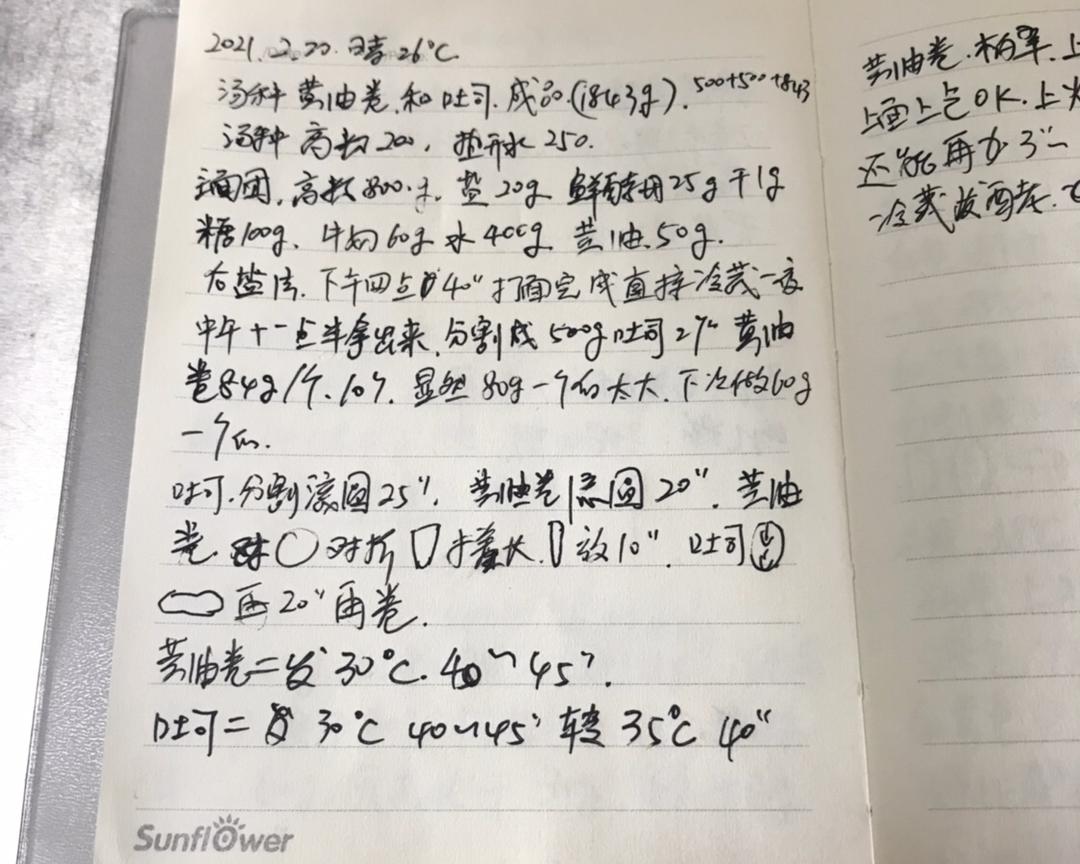 2021.2.20.晴26°C
汤种黄油卷.和吐司.成品.(1843g). 500+500+843
汤种 高粉200, 热开水250.
主面团,高粉800.g. 盐20g 鲜酵母25g 干1g
糖100g. 牛奶60g 水400g 黄油.50g.
后盐法.下午四点40"打面完成直接冷藏一夜
中午十一点半拿出来.分割成500g吐司2个 黄油
卷84g/个.10个.显然80g一个的太大.下次做60g
一个的.
吐司.分割滚圆25". 黄油卷 滚圆20". 黄油
卷. 对折 长. 放10". 吐司
再20"再卷.
黄油卷二发30°C.40~45'.
吐司二发30°C 40~45' 转35°C 40"
Sunflower
黄油卷.
上面上色OK.上火
还能再加3"
冷藏